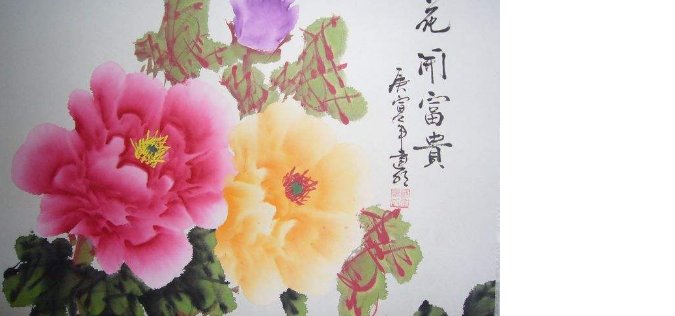 花開富貴
庚寅年